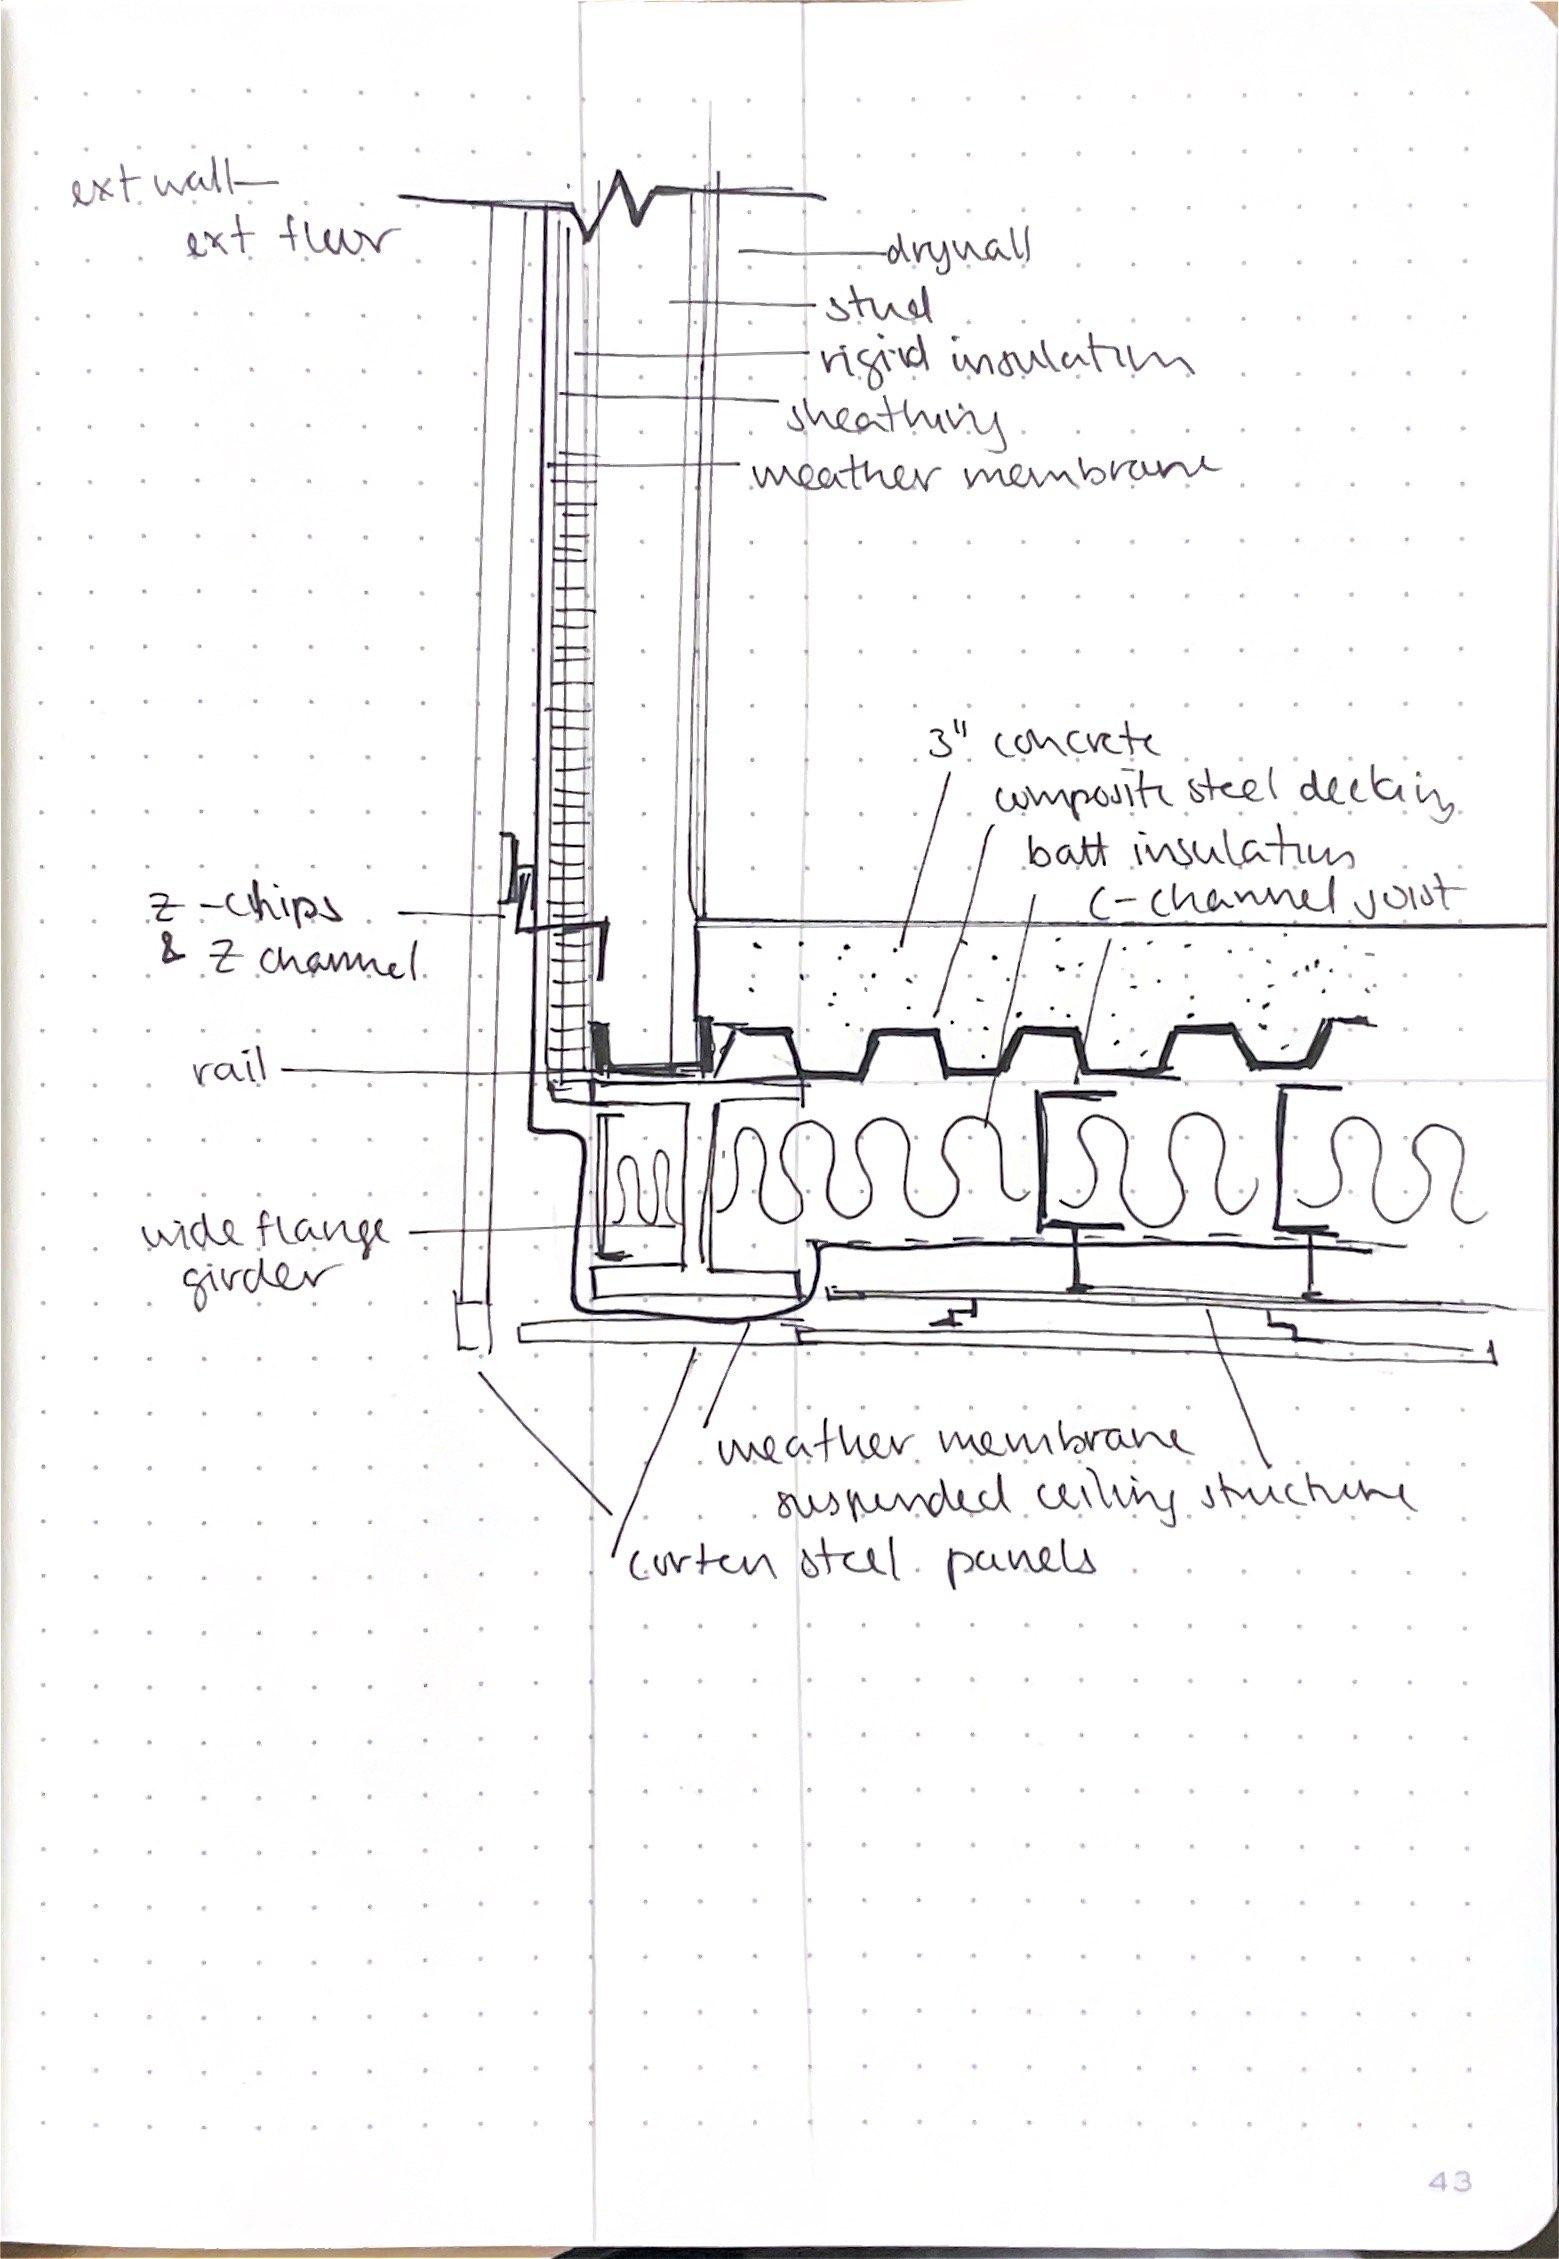 ext wall—
ext floor
drywall
stud
rigid insulation
sheathing
weather membrane
3" concrete
composite steel decking
batt insulation
C-channel joist
Z-chips
& Z channel
rail
wide flange
girder
weather membrane
suspended ceiling structure
corten steel panels
43